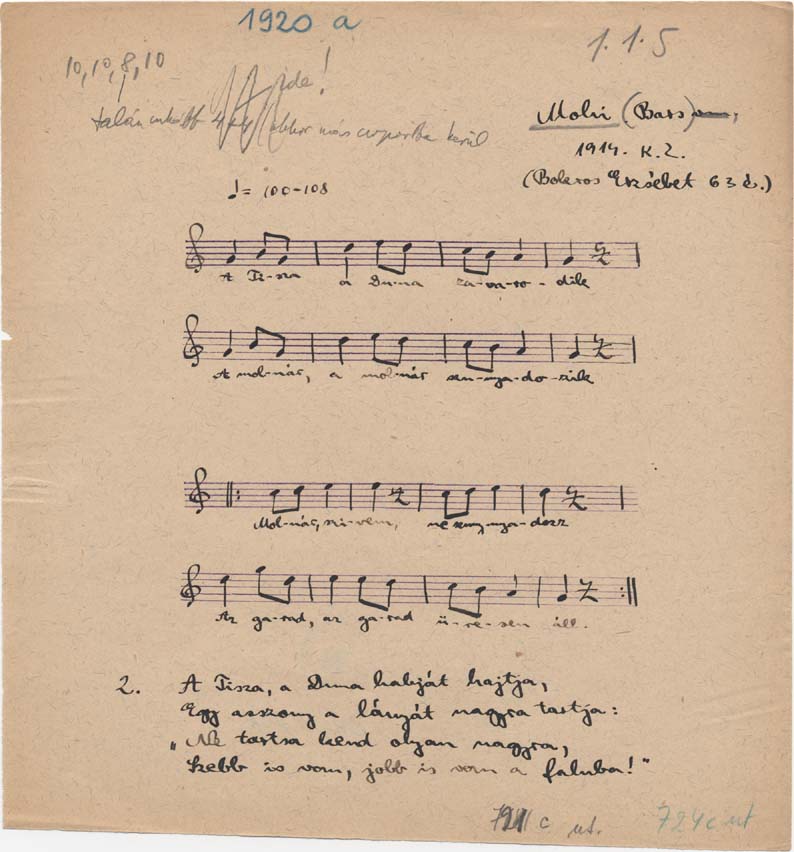 1920 a
1.1.5
10,10,8,10
ide!
talán inkább más csoportba kerül
Molri (Bars)
1914. K.Z.
♩= 100-108
(Bolexos Erzsébet 63 é.)
A Ti-sza a Du-na za-va-ro-dik
A mol-nár, a mol-nár szu-nya-do-zik
Mol-nár, szi-vem, ne szuny-nya-dozz
Az ga-rad, az ga-rad ü-re-sen áll.
2. A Tisza, a Duna habját hajtja,
Egy asszony a lányát nagyra tartja:
„Ne tartsa kend olyan nagyra,
Szebb is vom, jobb is vom a faluba!"
c ut. 724c ut